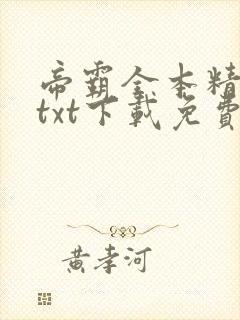 帝霸全本精
txt下載免費
黃孝河